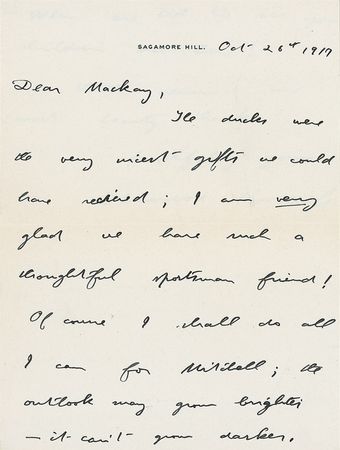 SAGAMORE HILL. Oct 26th 1917
Dear Mackay,
The ducks were
the very nicest gifts we could
have recieved; I am very
glad we have such a
thoughtful sportsman friend!
Of course I shall do all
I can for Mitchell; the
outlook may grow brighter
– it can't grow darker.